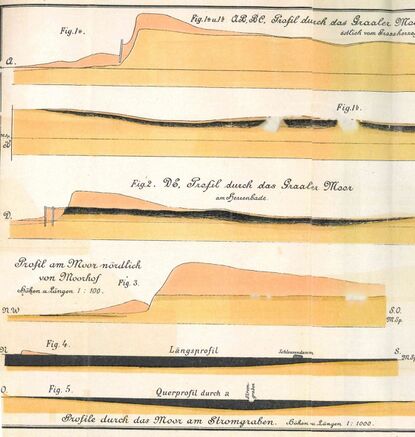 Fig. 1a u 1b AB, BC, Profil durch das Graaler Moo
östlich vom
Fig. 1a.
A.
Fig. 1b.
Fig. 2. DE, Profil durch das Graaler Moor
am Herrenbade.
D.
Profil am Moor nördlich
von Moorhof
Höhen u. Längen 1 : 100.
Fig. 3.
N.W
S.O.
M.Sp.
Fig. 4.
Längsprofil
Schleusendamm
N
S.
M.Sp
Fig. 5.
Querprofil durch a
O.
Profile durch das Moor am Stromgraben. Höhen u. Längen 1 : 1000.